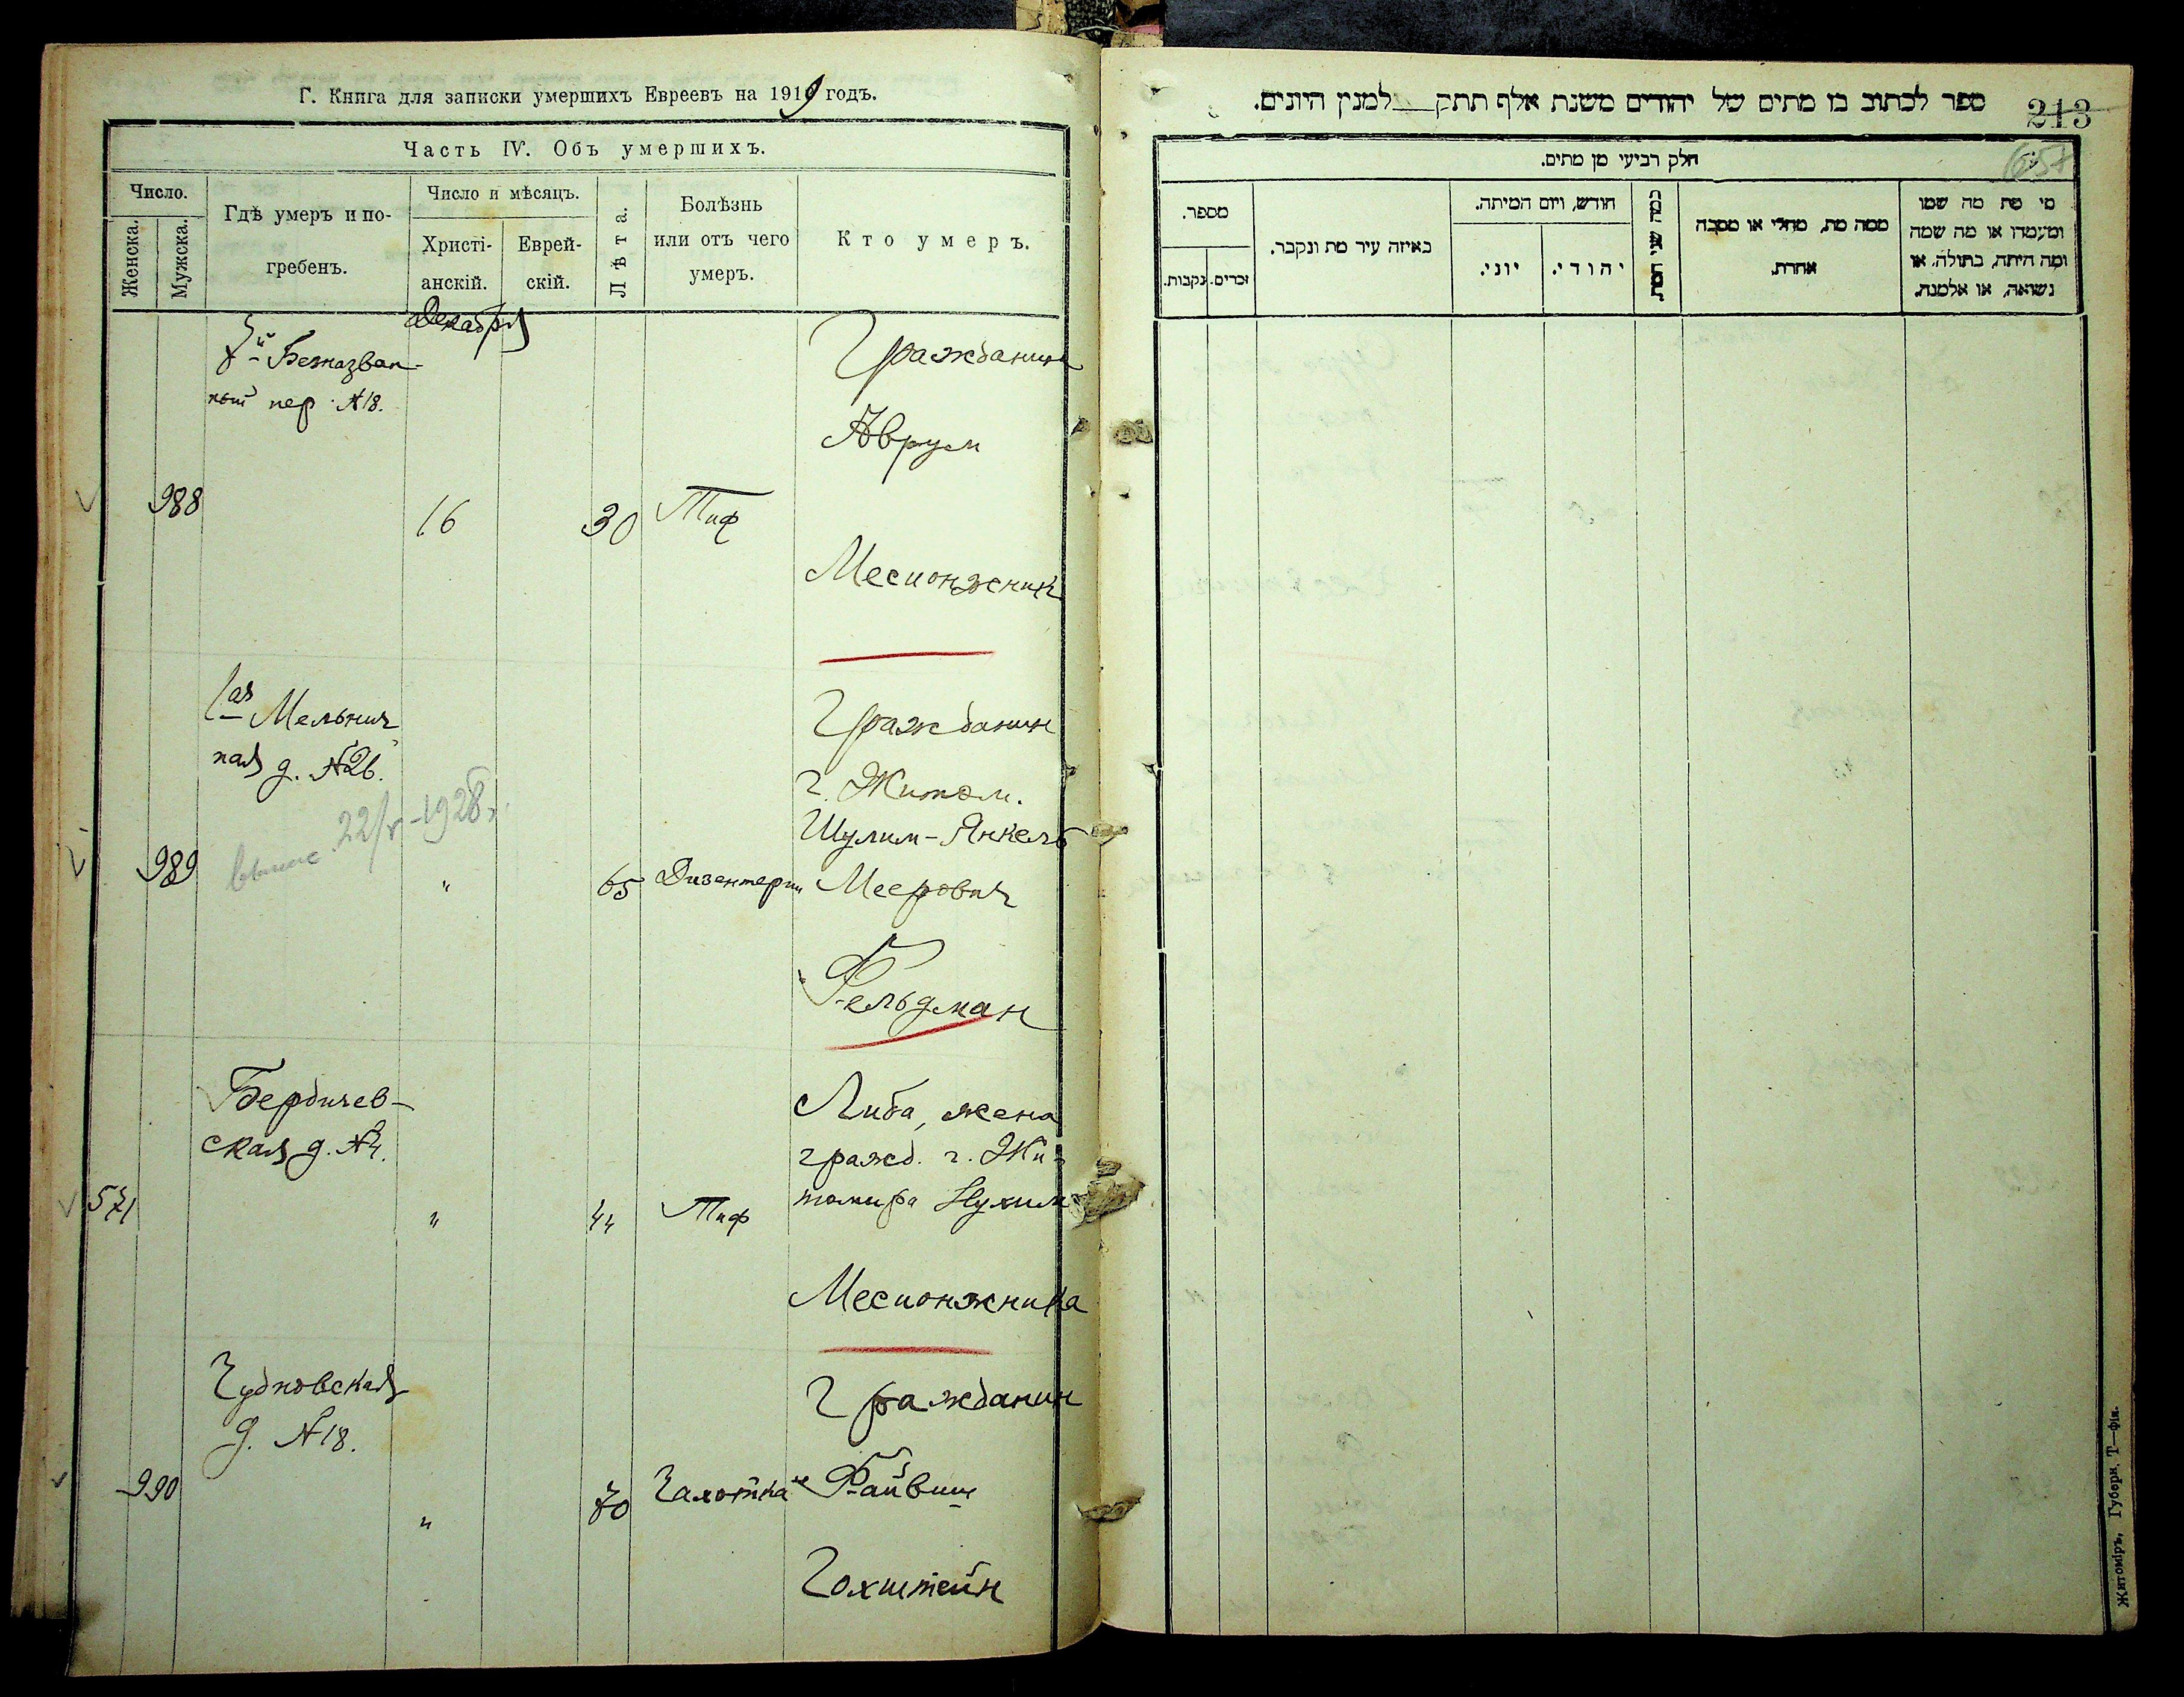 Г. Книга для записки умершихъ Евреевъ на 1919 годъ.
Часть IV. Объ умершихъ.
Число.
Женска.
Мужска.
Гдѣ умеръ и по-
гребенъ.
Число и мѣсяцъ.
Христі-
анскій.
Еврей-
скій.
Лѣта.
Болѣзнь
или отъ чего
умеръ.
Кто умеръ.
Декабря
7й Безназван-
ный пер. №18.
988
16
30
Тиф
Гражданин
Аврум
Месионжник
1ая Мельнич
ная д. №26.
выпис 22/V-1928г.
989
"
65
Дизентерия
Гражданин
г. Житом.
Шулим-Янкель
Меерович
Фельдман
Бердичев-
ская д. №4.
571
"
44
Тиф
Либа, жена
гражд. г. Жи-
томира Нухима
Месионжника
Чудновская
д. №18.
990
"
70
Чахотка
Гражданин
Файвиш
Гохштейн
ספר לכתוב בו מתים של יהודים משנת אלף תתק למנין היונים.
213
657
חלק רביעי מן מתים.
מספר.
זכרים.
נקבות.
באיזה עיר מת ונקבר.
חודש, ויום המיתה.
יוני.
יהודי.
כמה שני המת.
ממה מת, מחלי או מסבה
אחרת.
מי מת מה שמו
ומעמדו או מה שמה
ומה היתה, בתולה, או
נשואה, או אלמנה.
Житомiръ, Губерн. Т—фiя.